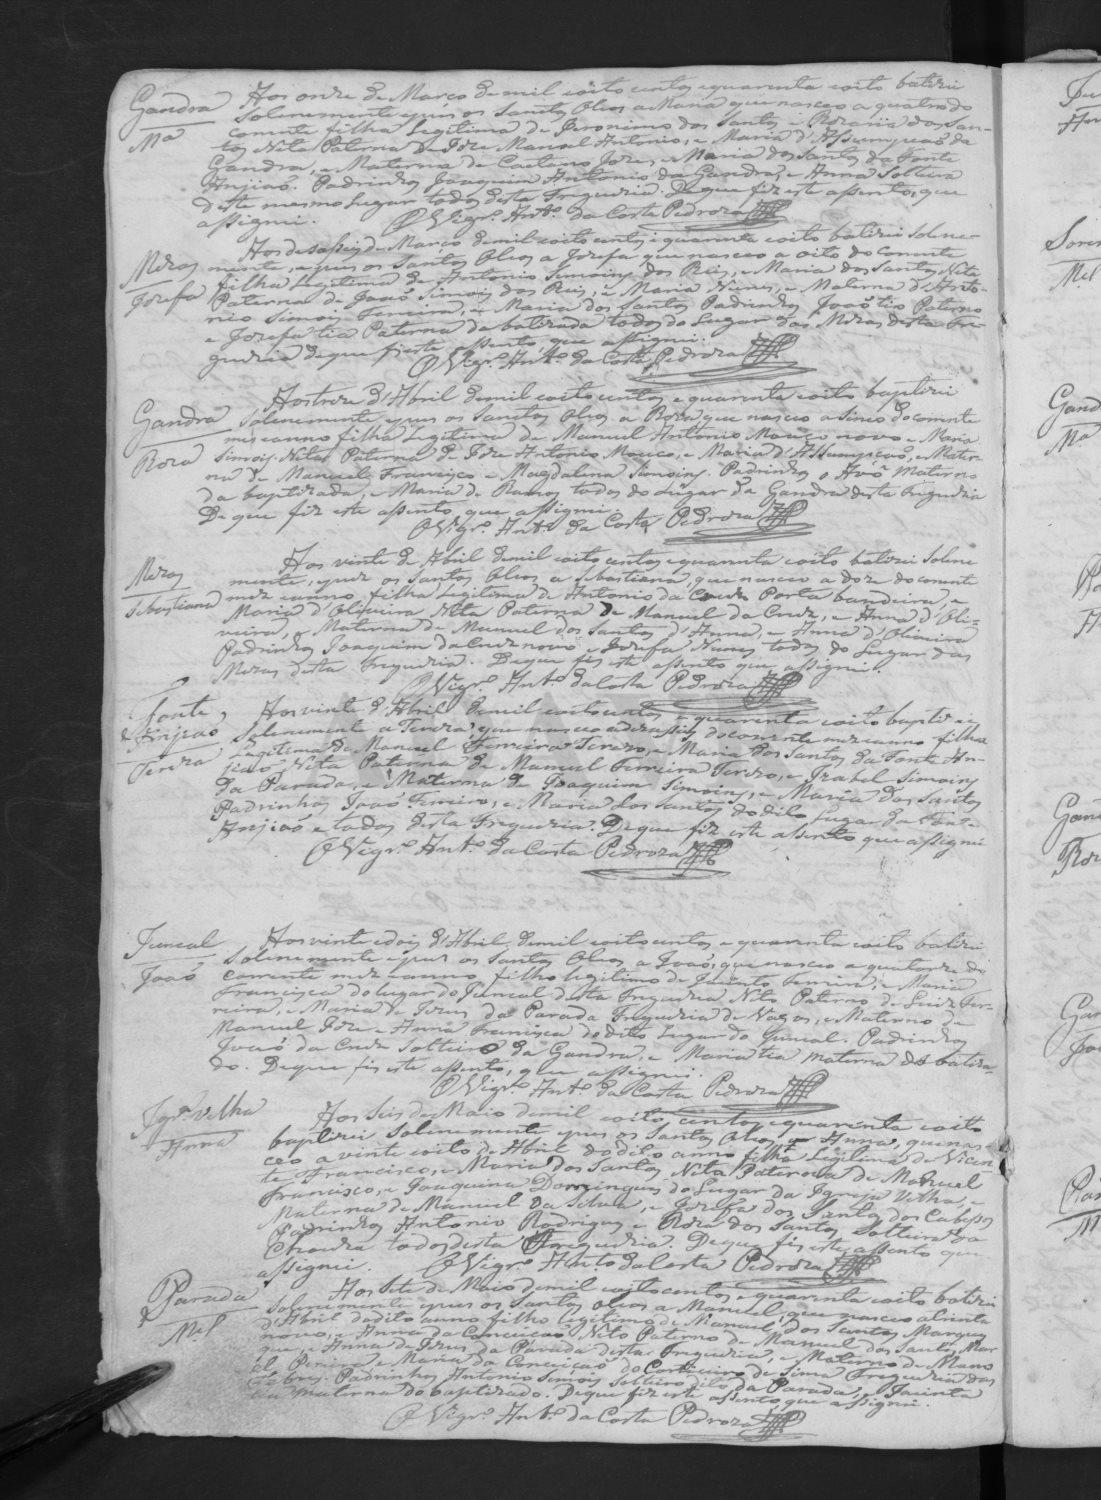 Gandra
Ma
Aos onze de Março de mil oito centos e quarenta e oito batizei
solenemente e puz os Santos Oleos a Maria que nasceo a quatro do
corrente filha Legitima de Jeronimo dos Santos e Rozaria dos San-
tos Nita Paterna de Joze Manoel Antonio, e Maria d'Assumpção da
Gandra, e Materna de Caetano Jozé, e Maria dos Santos da Fonte
Anjiaõ. Padrinhos Joaquim Antonio da Gandra, e Anna Solteira
deste mesmo Lugar todos desta Freguezia. De que fiz este assento, que
assignei. O Vigr.º Ant.º da Costa Pedroza
Mezas
Jozefa
Aos desaseis de Março de mil oito centos e quarenta e oito batizei Solene-
mente, e puz os Santos Oleos a Jozefa que nasceo a oito do corrente
filha Legitima de Antonio Simoins dos Reis, e Maria dos Santos Nita
Paterna de Joaõ Simois dos Reis, e Maria Nunes, e Materna d'Anto-
nio Simois Ferreira, e Maria dos Santos Padrinhos Joaõ tio Paterno
e Jozefa tia Paterna da batizada todos do Lugar das Mezas desta Fre-
guezia de que fis este assento que assignei.
O Vigr.º Ant.º da Costa Pedroza
Gandra
Roza
Aos treze d'Abril de mil oito centos e quarenta e oito baptizei
solenemente, e puz os Santos Oleos a Roza que nasceo a sinco do corrente
mez e anno filha Legitima de Manuel Antonio Mouco novo e Maria
Simois. Nita Paterna de Joze Antonio Mouco, e Maria d'Assumpçaõ, e Mater-
na de Manuel Francisco e Magdalena Simoins. Padrinhos o Avô Materno
da baptizada, e Maria de Ramos todos do Lugar da Gandra desta Freguezia
De que fiz este assento que assignei.
O Vigr.º Ant.º da Costa Pedroza
Mezas
Sebastiana
Aos vinte de Abril de mil oito centos e quarenta e oito batizei Solene
mente, e puz os Santos Oleos a Sebastiana, que nasceo a doze do corrente
mez e anno, filha Legitima de Antonio da Cruz Porta bandeira, e
Maria d'Oliveira Nita Paterna de Manuel da Cruz, e Anna d'Oli-
veira, e Materna de Manuel dos Santos d'Anna, e Anna d'Oliveira
Padrinhos Joaquim da Cruz novo e Jozefa Nunes todos do Lugar das
Mezas desta Freguezia. De que fis este assento que assignei.
O Vigr.º Ant.º da Costa Pedroza
Fonte
Anjiao
Tereza
Aos vinte d'Abril de mil oito centos e quarenta e oito baptizei
Solenemente a Tereza, que nasceo a dezaseis do corrente mez e anno filha
Legitima de Manuel Ferreira Terezo, e Maria dos Santos da Fonte An-
jiaõ Nita Paterna de Manuel Ferreira Terezo, e Izabel Simoins
da Parada, e Materna de Joaquim Simoins, e Maria dos Santos
Padrinhos Joaõ Ferreira, e Maria dos Santos do dito Lugar da Fonte
Anjiaõ e todos desta Freguezia. De que fiz este assento que assignei
O Vigr.º Ant.º da Costa Pedroza
Juncal
Joaõ
Aos vinte e dois d'Abril de mil oito centos e quarenta e oito batizei
Solenemente e puz os Santos Oleos a Joaõ, que nasceo a quatorze do
corrente mez e anno filho legitimo de Jacinto Ferreira, e Maria
Francisca do lugar do Juncal desta Freguezia Nito Paterno de Luiz Fer-
reira, e Maria de Jezus da Parada Freguezia de Vagos, e Materno de
Manuel Joze e Anna Francisca do dito Lugar do Juncal. Padrinhos
Joaõ da Cruz Solteiro da Gandra, e Maria tia materna do batiza-
do. De que fis este assento, que assignei.
O Vigr.º Ant.º da Costa Pedroza
Igr.ª velha
Anna
Aos Seis de Maio de mil oito centos e quarenta e oito
baptizei Solenemente e puz os Santos Oleos a Anna, que nas-
ceo a vinte e oito de Abril do dito anno filha Legitima de Vicen
te Francisco, e Maria dos Santos, Nita Paterna de Manuel
Francisco, e Joaquina Domingues do Lugar da Igreja Velha, e
Materna de Manuel da Silva, e Jozefa dos Santos dos Cabessos
Padrinhos Antonio Rodrigues e Roza dos Santos Solteira da
todos desta Freguezia. De que fis este assento que
assignei. O Vigr.º Ant.º da Costa Pedroza
Parada
Mel
Aos Sete de Maio de mil oito centos e quarenta e oito batizei
Solenemente e puz os Santos Oleos a Manuel, que nasceo a trinta
d'Abril do dito anno filho legitimo de Manuel dos Santos Marques
novo, e Anna da Conceiçaõ Nito Paterno de Manuel dos Santos Mar
que, e Anna de Jezus da Parada desta Freguezia, e Materno de Mano
el Pereira e Maria da Conceiçaõ do Corticeiro de Sima Freguezia das
Febres. Padrinhos Antonio Simois Solteiro dito da Parada, e Jacinta
tia Materna do baptizado. De que fiz este assento que assignei.
O Vigr.º Ant.º da Costa Pedroza